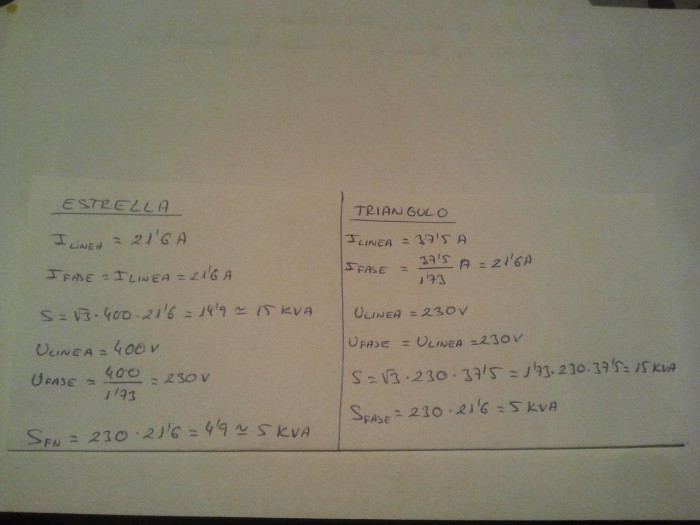 ESTRELLA
I LINEA = 21'6 A
I FASE = I LINEA = 21'6 A
S = √3 · 400 · 21'6 = 14'9 ≃ 15 KVA
U LINEA = 400 V
U FASE = 400/1'73 = 230 V
S FN = 230 · 21'6 = 4'9 ≃ 5 KVA
TRIANGULO
I LINEA = 37'5 A
I FASE = 37'5/1'73 A = 21'6 A
U LINEA = 230 V
U FASE = U LINEA = 230 V
S = √3 · 230 · 37'5 = 1'73 · 230 · 37'5 = 15 KVA
S FASE = 230 · 21'6 = 5 KVA